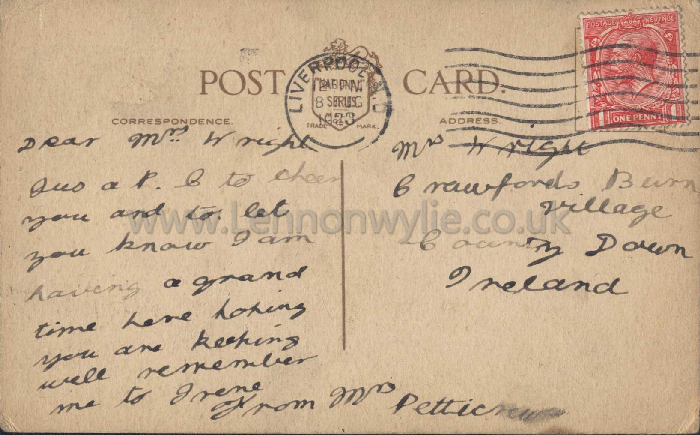 POST CARD.
CORRESPONDENCE.
ADDRESS
TRADE MARK.
LIVERPOOL
SERIES
POSTAGE REVENUE
ONE PENNY
www.Lennonwylie.co.uk
Dear Mrs Wright
Jus a P. C to cheer
you and to let
you know I am
having a grand
time here hoping
you are keeping
well remember
me to Irene
From Mrs Petticrew
Mrs Wright
Crawfords Burn
Village
County Down
Ireland